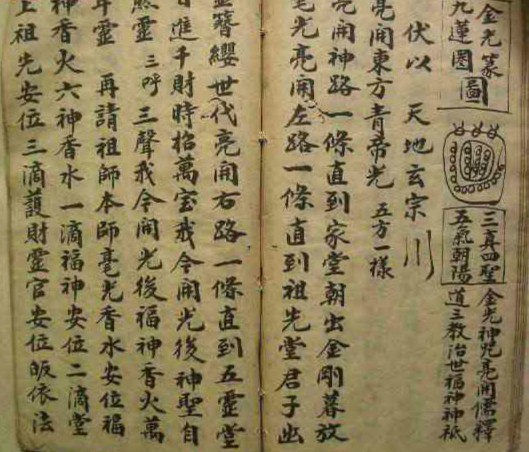 金光篆
九蓮圖
三真四聖
五氣朝陽
金光神咒亮開儒釋
道三教治世福神神祇
伏以 天地玄宗
亮開東方青帝光 五方一樣
亮開神路一條直到家堂朝出金剛暮放
毫光亮開左路一條直到祖先堂君子出
簪纓世代亮開右路一條直到五靈堂
日進千財時招萬宝我今開光後神聖自
然靈 三呼 三聲我今開光後福神香火萬
年靈 再請祖師本師毫光香水安位福
神香火六神香水一滴福神安位二滴堂
上祖先安位三滴護財靈官安位皈依法